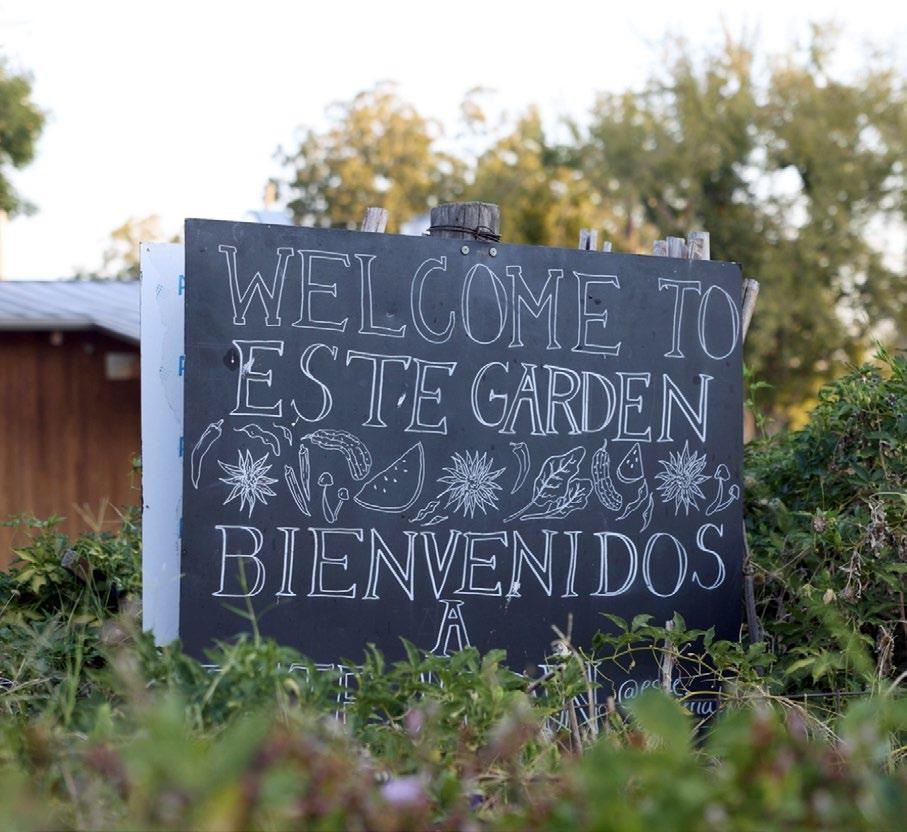 WELCOME TO
ESTE GARDEN
BIENVENIDOS
A